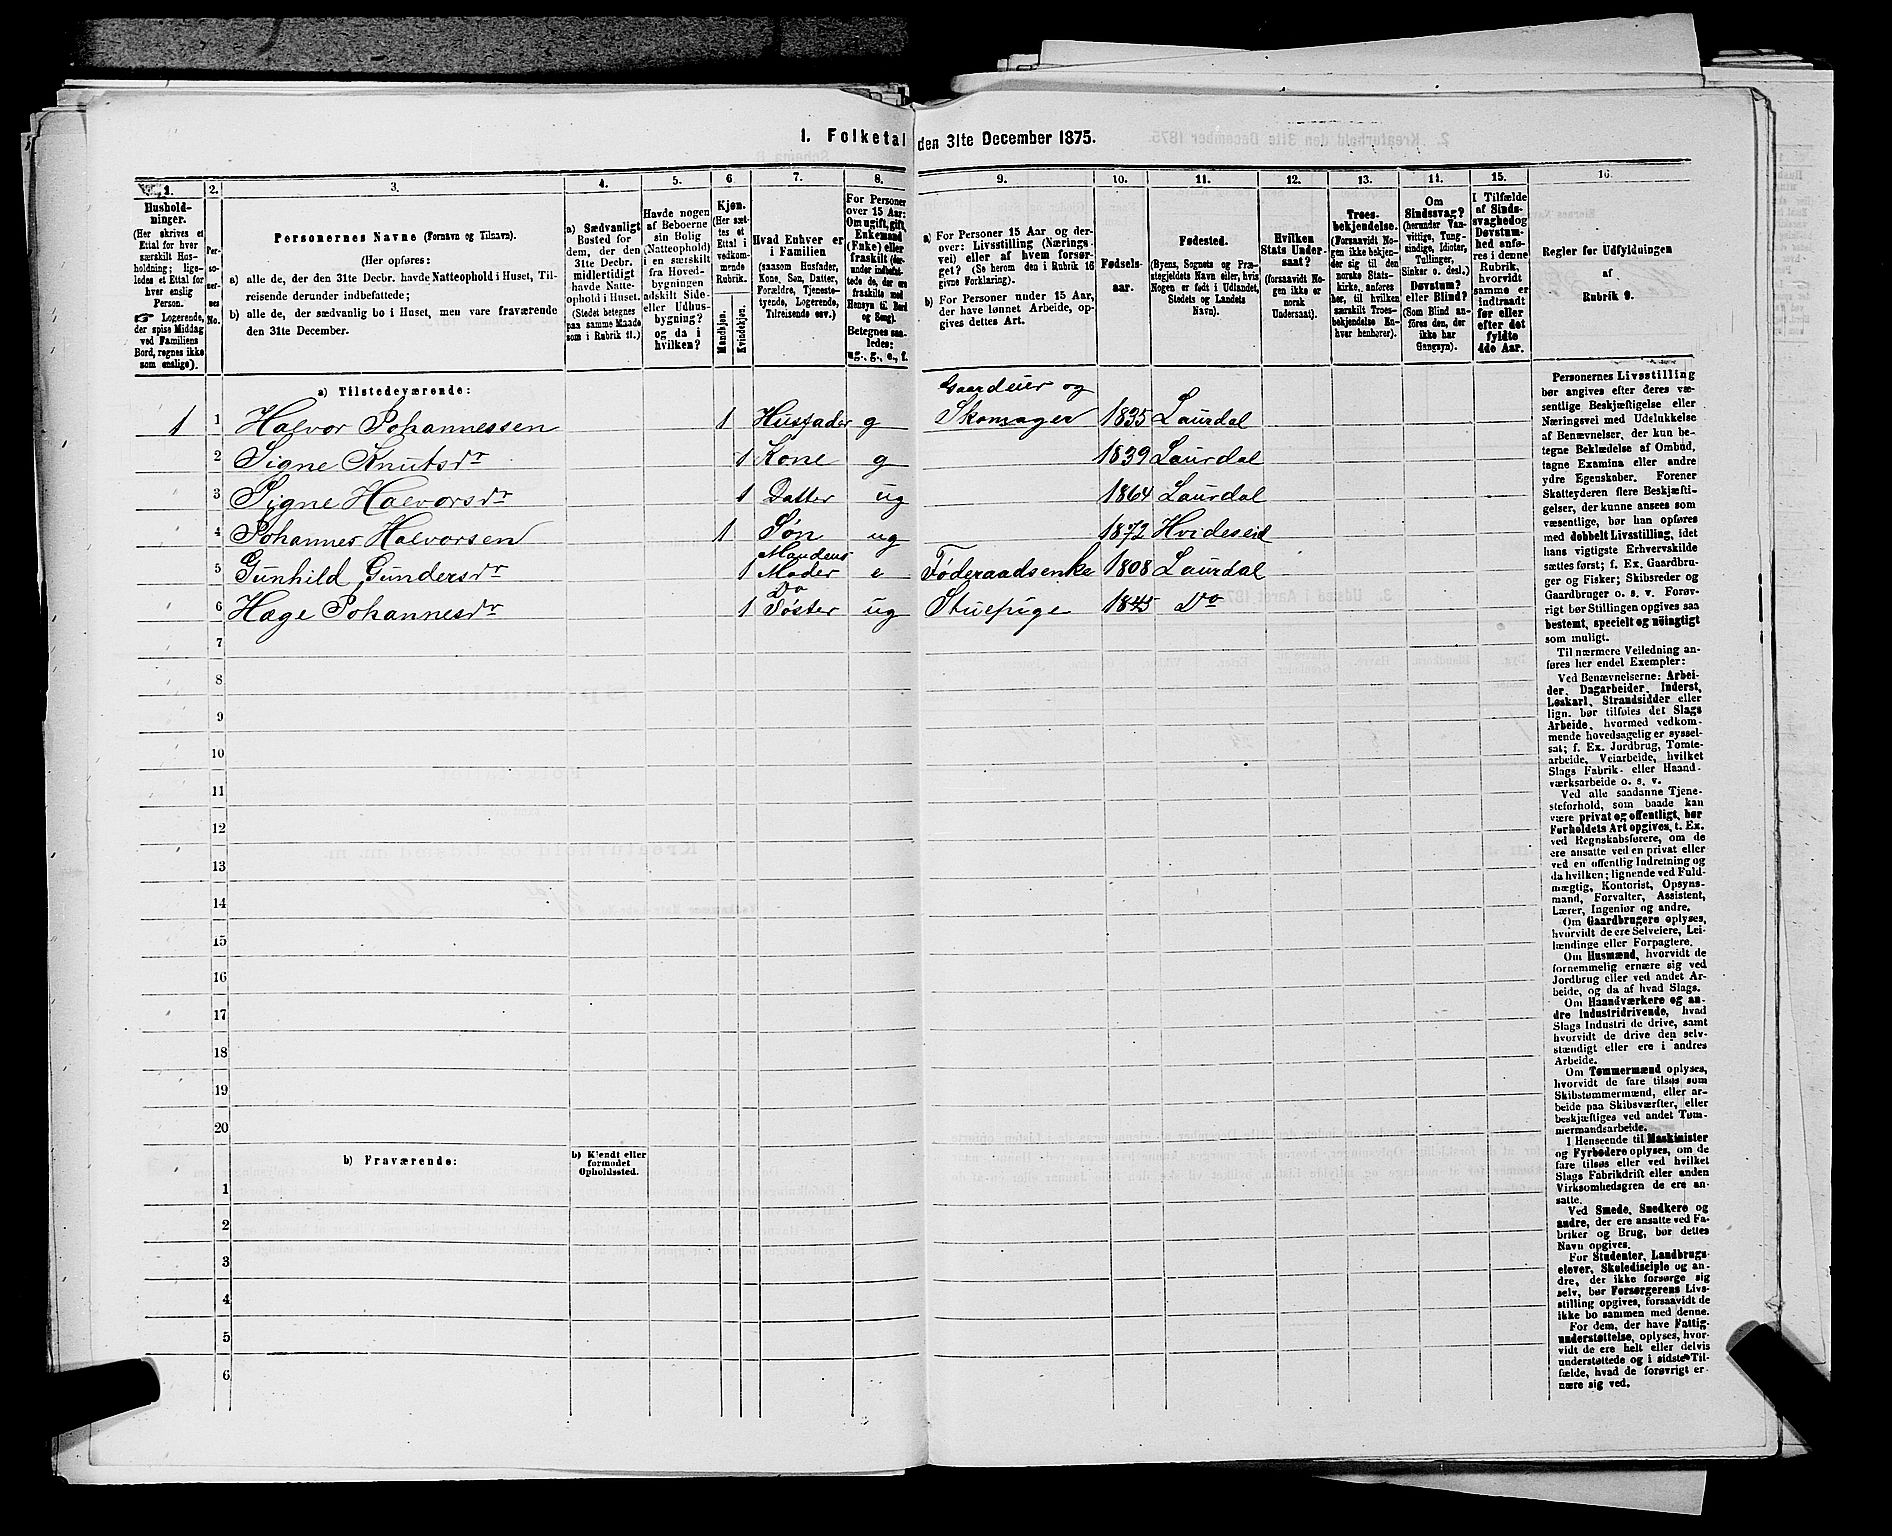 1. Folketal den 31te December 1875.
1. 2. 3. 4. 5. 6. 7. 8. 9. 10. 11. 12. 13. 14. 15. 16.
Hushold-
ninger.
(Her skrives et
Ettal for hver
særskilt Hus-
holdning; lige-
ledes et Ettal for
hver enslig
Person.
☞ Logerende,
der spise Middag
ved Familiens
Bord, regnes ikke
som enslige).
Per-
so-
ner-
nes
No.
Personernes Navne (Fornavn og Tilnavn).
(Her opføres:
a) alle de, der den 31te Decbr. havde Natteophold i Huset, Til-
reisende derunder indbefattede;
b) alle de, der sædvanlig bo i Huset, men vare fraværende
den 31te December.
a) Sædvanligt
Bosted for
dem, der den
31te Decbr.
midlertidigt
havde Natte-
ophold i Huset.
(Stedet betegnes
paa samme Maade
som i Rubrik 11.)
Havde nogen
af Beboerne
sin Bolig
(Natteophold)
i en særskilt
fra Hoved-
bygningen
adskilt Side-
eller Udhus-
bygning?
og da i
hvilken?
Kjøn.
(Her sæt-
tes et
Ettal i
vedkom-
mende
Rubrik.
Mandkjøn.
Kvindekjøn.
Hvad Enhver er
i Familien
(saasom Husfader,
Kone, Søn, Datter,
Forældre, Tjeneste-
tyende, Logerende,
Tilreisende osv.)
For Personer
over 15 Aar:
Om ugift, gift,
Enkemand
(Enke) eller
fraskilt (der-
under indbefat-
tede de, der ere
fraskilte med
Hensyn til Bord
og Seng).
Betegnes saa-
ledes:
ug., g., e., f.
a) For Personer 15 Aar og der-
over: Livsstilling (Nærings-
vei) eller af hvem forsør-
get? (Se herom den i Rubrik 16
givne Forklaring).
b) For Personer under 15 Aar,
der have lønnet Arbeide, op-
gives dettes Art.
Fødsels-
aar.
Fødested.
(Byens, Sognets og Præ-
stegjeldets Navn eller, hvis
Nogen er født i Udlandet,
Stedets og Landets
Navn).
Hvilken
Stats Under-
saat?
(forsaavidt No-
gen ikke er
norsk
Undersaat).
Troes-
bekjendelse.
(Forsaavidt No-
gen ikke bekjen-
der sig til den
norske Stats-
kirke, anføres
her, til hvilken
særskilt Troes-
bekjendelse En-
hver henhører).
Om
Sindssvag?
(herunder Van-
vittige, Tung-
sindige, Idioter,
Sinker o. desl.)
Døvstum?
eller Blind?
(Som Blind an-
føres den, der
ikke har
Gangsyn).
I Tilfælde
af Sinds-
svaghed og
Døvstum-
hed anfø-
res i denne
Rubrik,
hvorvidt
samme er
indtraadt
før eller
efter det
fyldte
4de Aar.
Regler for Udfyldningen
af
Rubrik 9.
a) Tilstedeværende:
Gaardeier og
1 1 Halvor Johannessen 1 Husfader g Skomager 1835 Laurdal
2 Signe Knutsdr 1 Kone g 1839 Laurdal
3 Signe Halvorsdr 1 Datter ug 1864 Laurdal
4 Johannes Halvorsen 1 Søn ug 1872 Hvideseid
Mandens
5 Gunhild Gundersdr 1 Moder e Føderaadsenke 1808 Laurdal
Do
6 Hage Johannesdr 1 Søster ug Stuepige 1845 Do
7
8
9
10
11
12
13
14
15
16
17
18
19
20
b) Fraværende:
b) Kjendt eller
formodet
Opholdssted.
1
2
3
4
5
6
Personernes Livsstilling
bør angives efter deres væ-
sentlige Beskjæftigelse eller
Næringsvei med Udelukkelse
af Benævnelser, der kun be-
tegne Beklædelse af Ombud,
tagne Examina eller andre
ydre Egenskaber. Forener
Skatteyderen flere Beskjæfti-
gelser, der kunne ansees som
væsentlige, bør han opføres
med dobbelt Livsstilling, idet
hans vigtigste Erhvervskilde
sættes først; f. Ex. Gaardbru-
ger og Fisker; Skibsreder og
Gaardbruger o. s. v. Forøv-
rigt bør Stillingen opgives saa
bestemt, specielt og nøiagtigt
som muligt.
Til nærmere Veiledning an-
føres her endel Exempler:
Ved Benævnelserne: Arbei-
der, Dagarbeider, Inderst,
Løskarl, Strandsidder eller
lign. bør tilføies det Slags
Arbeide, hvormed vedkom-
mende hovedsagelig er syssel-
sat; f. Ex. Jordbrug, Tomte-
arbeide, Veiarbeide, hvilket
Slags Fabrik- eller Haand-
værksarbeide o. s. v.
Ved alle saadanne Tjene-
steforhold, som baade kan
være privat og offentligt, bør
Forholdets Art opgives, t. Ex.
ved Regnskabsførere, om de
ere ansatte ved en privat eller
ved en offentlig Indretning og
da hvilken; lignende ved Fuld-
mægtig, Kontorist, Opsyns-
mand, Forvalter, Assistent,
Lærer, Ingeniør og andre.
Om Gaardbrugere oplyses,
hvorvidt de ere Selveiere, Lei-
lændinge eller Forpagtere.
Om Husmænd, hvorvidt de
fornemmelig ernære sig ved
Jordbrug eller ved andet Ar-
beide, og da af hvad Slags.
Om Haandværkere og an-
dre Industridrivende, hvad
Slags Industri de drive, samt
hvorvidt de drive den selv-
stændigt eller ere i andres
Arbeide.
Om Tømmermænd oplyses,
hvorvidt de fare tilsøs som
Skibstømmermænd, eller ar-
beide paa Skibsværfter, eller
beskjæftiges ved andet Tøm-
mermandsarbeide.
I Henseende til Maskinister
og Fyrbødere oplyses, om de
fare tilsøs eller ved hvilket
Slags Fabrikdrift eller anden
Virksomhedsgren de ere an-
satte.
Ved Smede, Snedkere og
andre, der ere ansatte ved Fa-
briker og Brug, bør dettes
Navn opgives.
For Studenter, Landbrugs-
elever, Skoledisciple og an-
dre, der ikke forsørge sig
selv, bør Forsørgerens Livs-
stilling opgives, forsaavidt de
ikke bo sammen med denne.
For dem, der have Fattig-
understøttelse, oplyses, hvor-
vidt de ere helt eller delvis
understøttede og i sidste Til-
fælde, hvad de forøvrigt er-
nære sig ved.